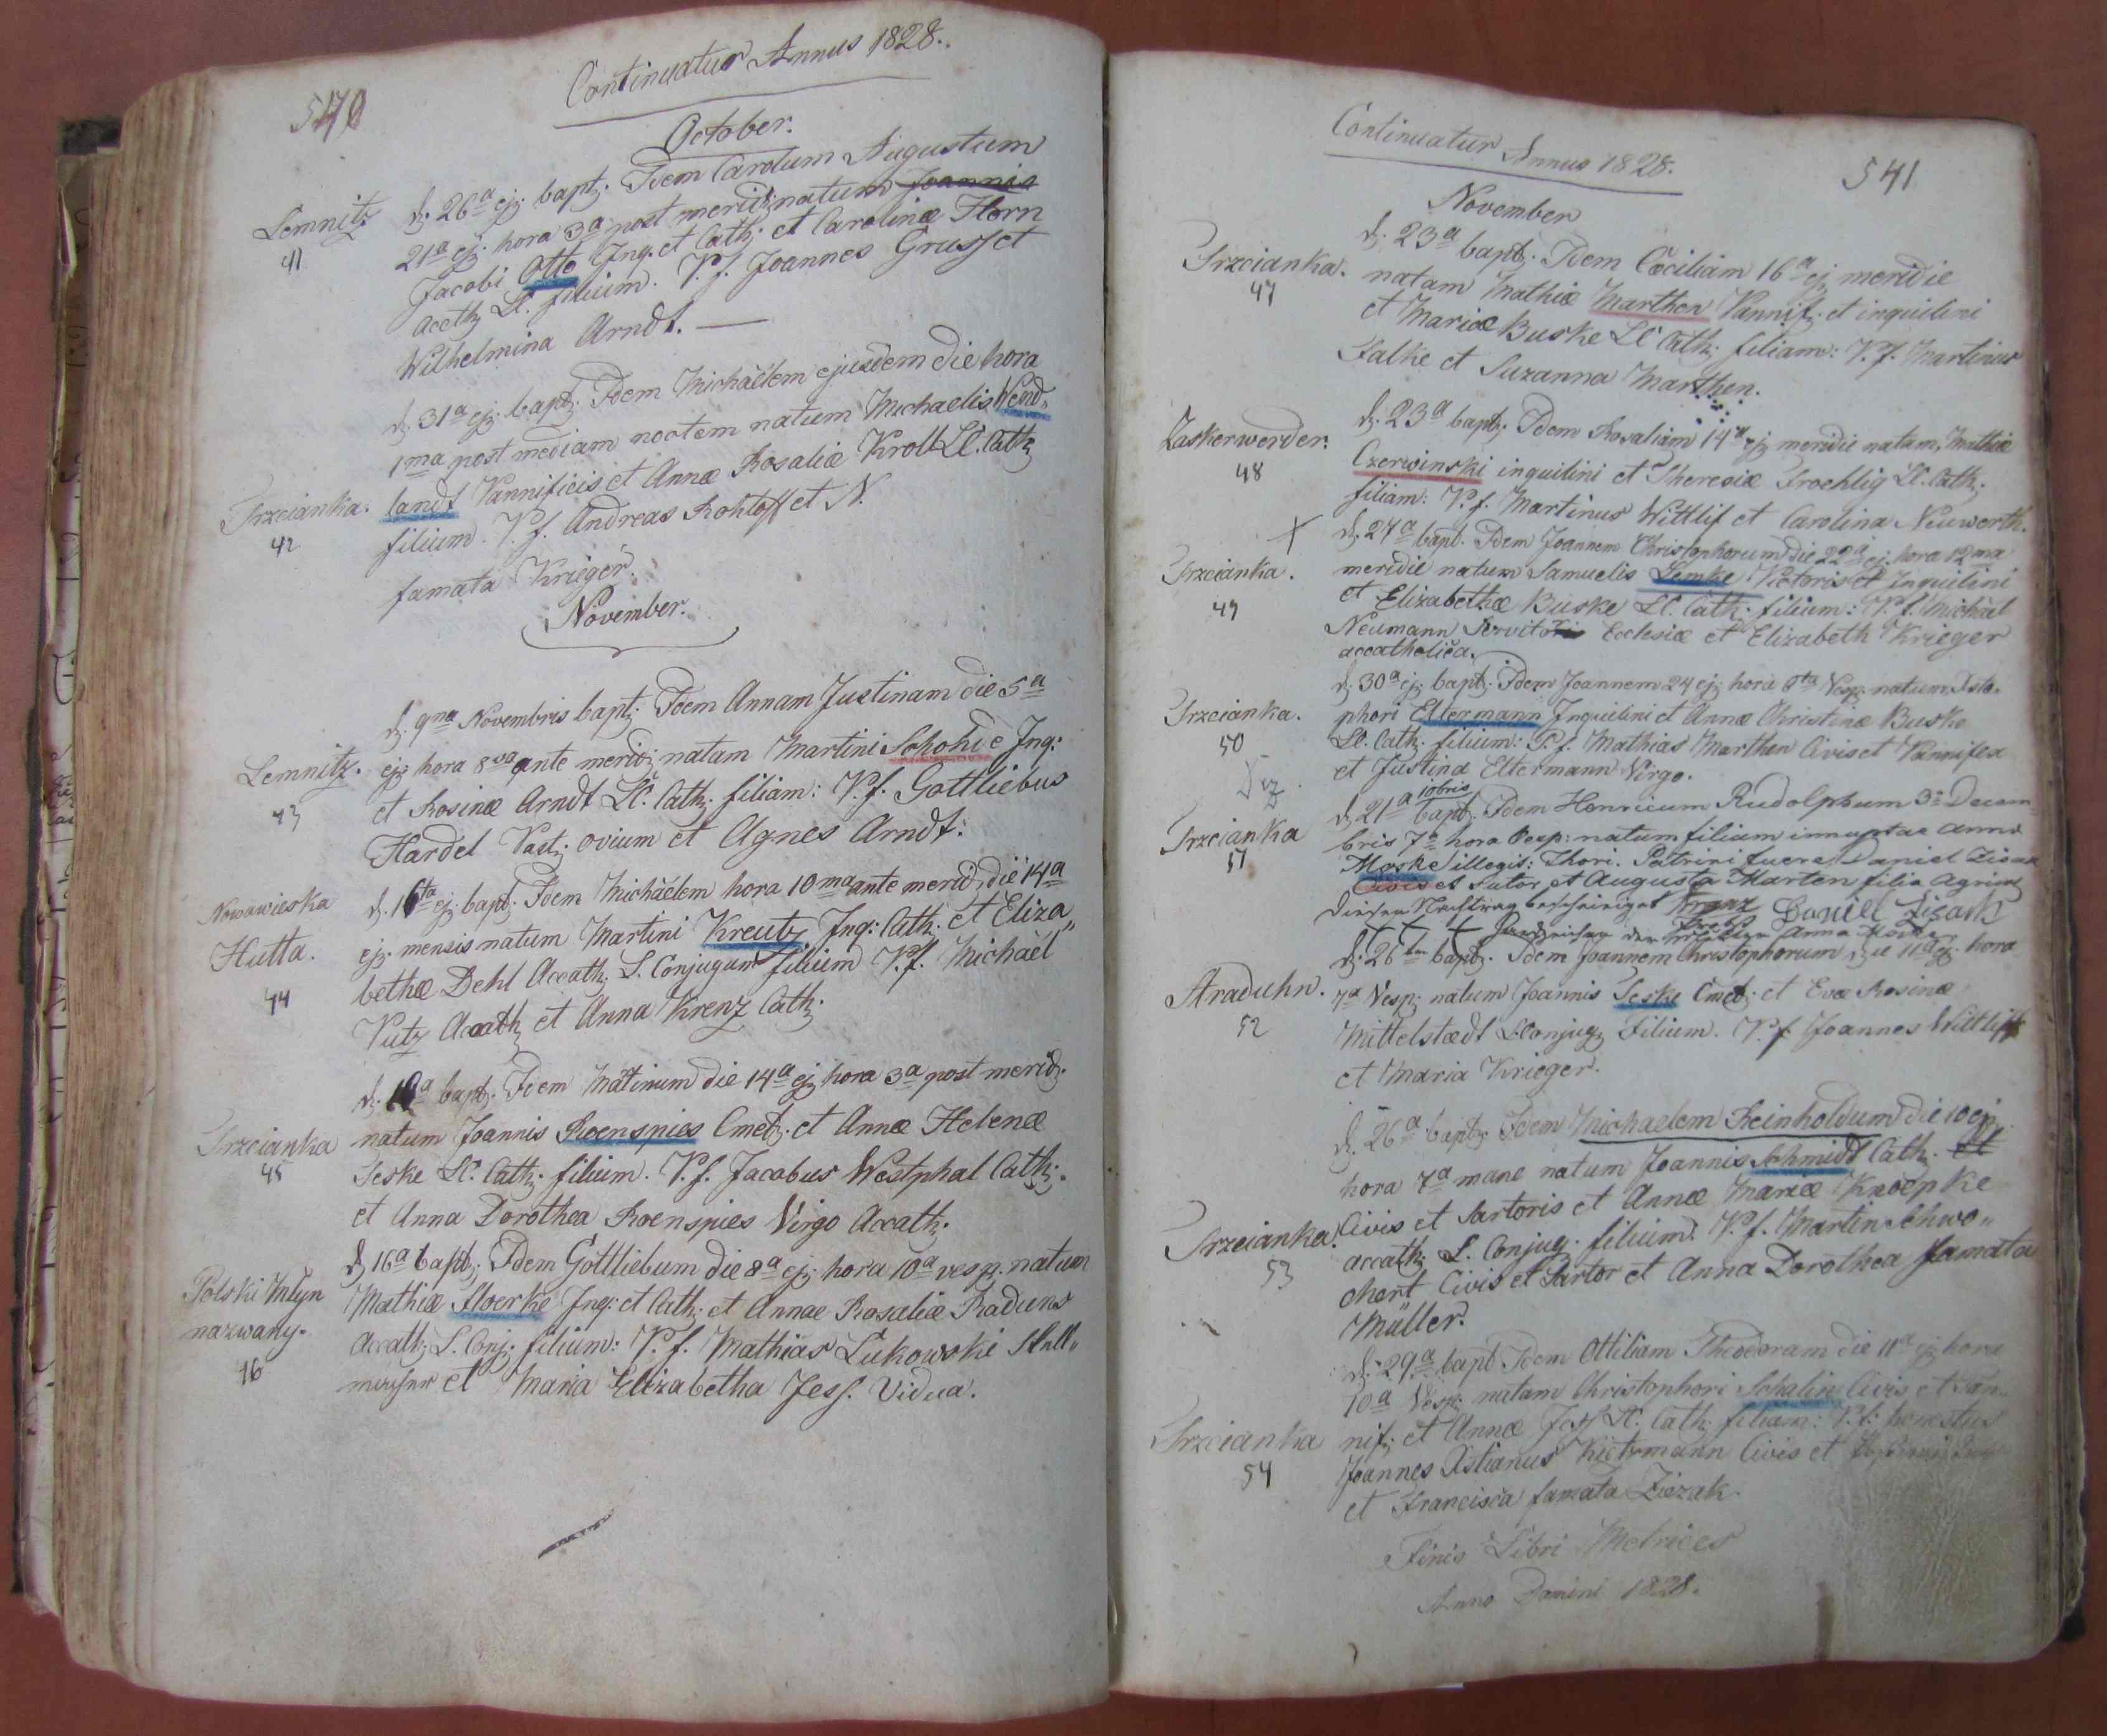 540
Continuatur Annus 1828.
October.
Lemnitz
41
d. 26a ej. bapt. Idem Carolum Augustum
21a ej. hora 3a post merid. natum Joannis
Jacobi Otto Inq. et Cath. et Carolinæ Horn
acath. LC. filium. P.f. Joannes Gruss et
Wilhelmina Arndt. —
Trzcianka.
42
d. 31a ej. bapt. Idem Michaëlem ejusdem die hora
1ma post mediam noctem natum Michaelis Wend„
landt Pannificis et Annæ Rosaliæ Kroll LC. Cath.
filium. P.f. Andreas Rohloff et N.
famata Krieger.
November.
Lemnitz.
43
d. 9na Novembris bapt. Idem Annam Justinam die 5a
ej. hora 8va ante merid. natam Martini Schohde Inq.
et Rosinæ Arndt LC. Cath. filiam: P.f. Gottliebus
Hardel Past. ovium et Agnes Arndt.
Nowawieska
Hutta.
44
d. 16ta ej. bapt. Idem Michäelem hora 10ma ante merid. die 14a
ej. mensis natum Martini Kreutz Inq: Cath. et Eliza„
bethæ Dehl Accath. L. Conjugum filium P.f. Michäel
Putz Accath. et Anna Krenz Cath.
Trzcianka
45
d. bapt. Idem Matinum die 14a ej. hora 3a post merid.
natum Joannis Roenspies Cmet. et Annæ Helenæ
Jeske LC. Cath. filium. P.f. Jacobus Westphal Cath.
et Anna Dorothea Roenspies Virgo Accath.
Polski Młyn
nazwany.
46
d. 16a bapt. Idem Gottliebum die 8a ej. hora 10a vesp. natum
Mathiæ Floerke Inq. et Cath. et Annae Rosaliæ Raduns
Accath. L. Conj. filium: P.f. Mathias Lukowski
et Maria Elizabetha Jess. Vidua.
Continuatur Annus 1828.
541
November
Trzcianka.
47
d. 23a bapt. Idem Cœciliam 16a ej. meridie
natam Mathiæ Marthen Pannif. et inquilini
et Mariæ Buske LC Cath. filiam: P.f. Martinus
Falke et Suzanna Marthen.
Zaskerwerder.
48
d. 23a bapt. Idem Rosaliam 14a ej. meridie natam, Mathiæ
Czerwinski inquilini et Theresiæ Froehlig LC. Cath.
filiam: P.f. Martinus Wittlif et Carolina Neuwerth.
Trzcianka.
49
d. 27a bapt. Idem Joannem Christophorum die 22a ej. hora 12ma
meridie natum Samuelis Lemke Pictoris et Inquilini
et Elizabethæ Buske LC. Cath. filium: P.f. Michäel
Neumann Servitoris Ecclesiæ et Elizabeth Krieger
accatholica.
Trzcianka.
50
d. 30a ej. bapt. Idem Joannem 24 ej. hora Vesp. natum,
phori Eltermann Inquilini et Annæ Christinæ Buske
LC. Cath. filium: P.f. Mathias Marthen Civis et Pannifex
et Justina Eltermann Virgo.
Trzcianka
51
d. 21a 10bris bapt. Idem Henricum Rudolphum 3a Decem„
bris 7a hora Vesp: natum filium innuptae Annæ
illegit: Thori. Patrini fuere Daniel Zisak
Civis et Sutor et Augusta Marten filia
Diesen Nachtrag bescheiniget Krenz Daniel Zisack
+ + + Anna
Straduhn.
52
d. 26 bapt. Idem Joannem Christophorum die 11a ej. hora
7a Vesp. natum Joannis Jeske Cmet. et Evæ Rosinæ
Mittelstædt LConjug. filium. P.f. Joannes Wittlif
et Maria Krieger.
Trzcianka.
53
d. 26a bapt. Idem Michaelem Reinholdum die 10 ej.
hora 7a mane natum Joannis Schmidt Cath. et
Civis et Sartoris et Annæ Mariæ Knoepke
accath. L. Conjug. filium. P.f. Martin Schwo„
chert Civis et Sartor et Anna Dorothea famata
Müller.
Trzcianka
54
d. 29a bapt Idem Ottiliam Theodoram die 11a ej. hora
10a Vesp. natam Christophori Schalin Civis et Pan„
nif. et Annæ Jess LC. Cath. filiam: P.f. honestus
Joannes Xstianus Kietzmann Civis et
et Francisca famata Ziezak.
Finis Libri Metrices
Anno Domini 1828.